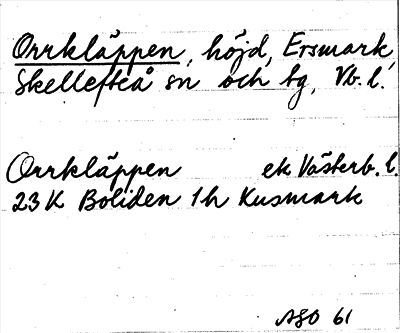 Orrkläppen, höjd, Ersmark,
Skellefteå sn och tg, Vb. l.
Orrkläppen ek Västerb. l.
23 K Boliden 1h Kusmark
ASO 61